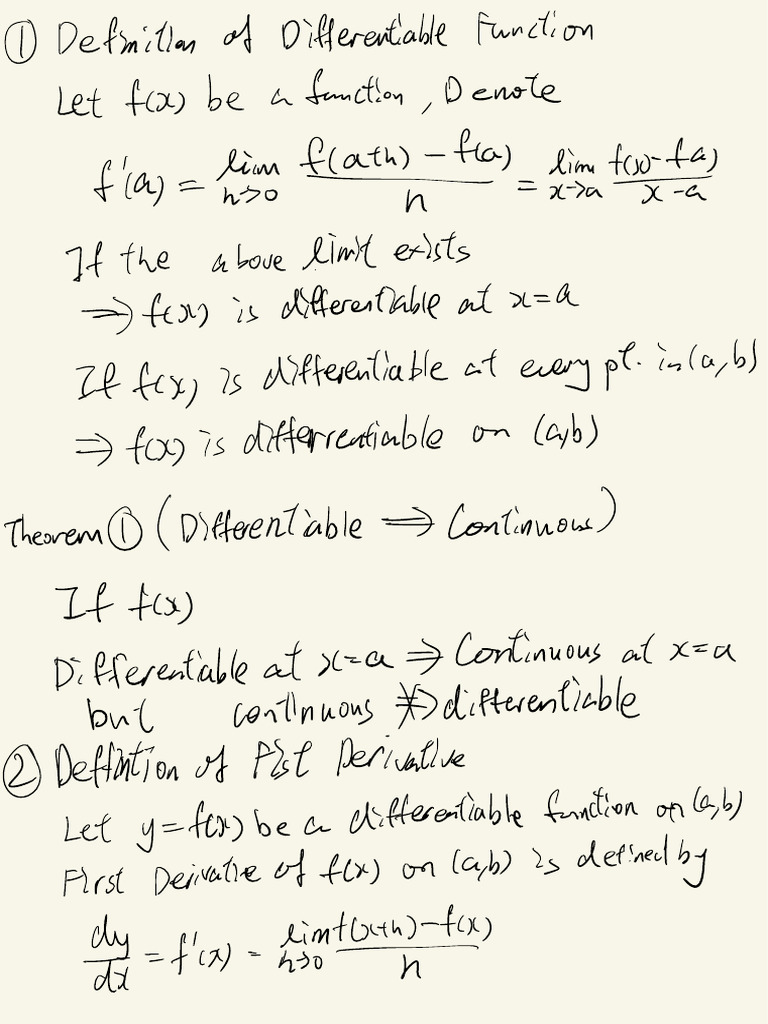 ① Definition of Differentiable Function
Let f(x) be a function, Denote
f'(a) = lim h→0 f(a+h) - f(a) / h = lim x→a f(x) - f(a) / x - a
If the above limit exists
⇒ f(x) is differentiable at x=a
If f(x) is differentiable at every pt. in (a,b)
⇒ f(x) is differrentiable on (a,b)
Theorem ① (Differentiable ⇒ Continuous)
If f(x)
Differentiable at x=a ⇒ Continuous at x=a
but continuous ⇏ differentiable
② Deffintion of First Derivative
Let y=f(x) be a differentiable function on (a,b)
First Derivative of f(x) on (a,b) is defined by
dy/dx = f'(x) = lim h→0 f(x+h) - f(x) / h